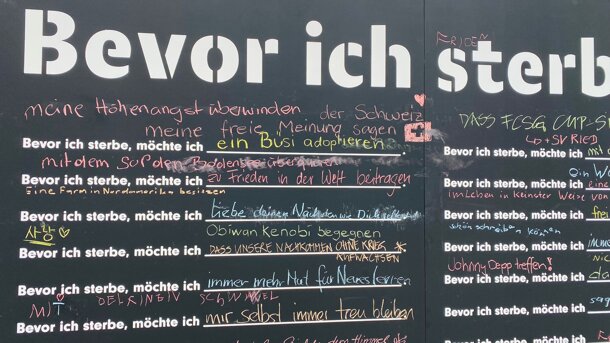 Bevor ich sterbe
FRIDEN
meine Höhenangst überwinden der Schweiz
meine freie Meinung sagen
Bevor ich sterbe, möchte ich ein Büsi adoptieren
mit dem SUP den Bodensee überqueren
Bevor ich sterbe, möchte ich zu Frieden in der Welt beitragen
Eine Farm in Nordamerika besitzen
Bevor ich sterbe, möchte ich Liebe deinen Nächsten wie Dich selbst
사랑 Obiwan Kenobi begegnen
Bevor ich sterbe, möchte ich DASS UNSERE NACHKOMMEN OHNE KRIEG
AUFWACHSEN
Bevor ich sterbe, möchte ich immer mehr Mut für Neues
MIT
Bevor ich sterbe, möchte ich mir selbst immer treu bleiben
DASS FCSG CUP-
SV Ried
Bevor ich sterbe, möchte ich
Bevor ich sterbe, möchte ich eine
im Leben in keinster Weise
Bevor ich sterbe, möchte ich
schön schreiben können
Bevor ich sterbe, möchte ich
Johnny Depp treffen!
Bevor ich sterbe, möchte ich
Bevor ich sterbe, möchte ich